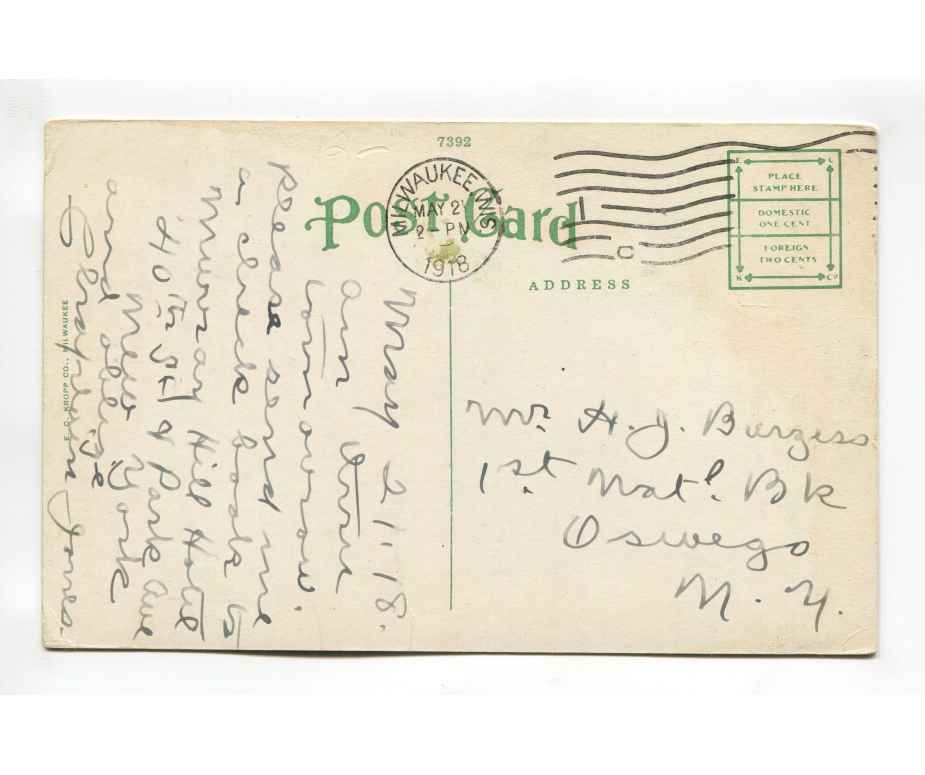 7392
Post Card
MILWAUKEE, WIS.
MAY 21
2 PM
1918
PLACE
STAMP HERE
DOMESTIC
ONE CENT
FOREIGN
TWO CENTS
E C K Co
ADDRESS
May 21.18.
Am
tomorrow.
Please send me
a check book to
Murray Hill Hotel
40th St & Park Ave
New York
and oblige
Jones.
Mr. H. J. Burgess
1st Natl. Bk
Oswego
N. Y.
E. C. KROPP CO., MILWAUKEE